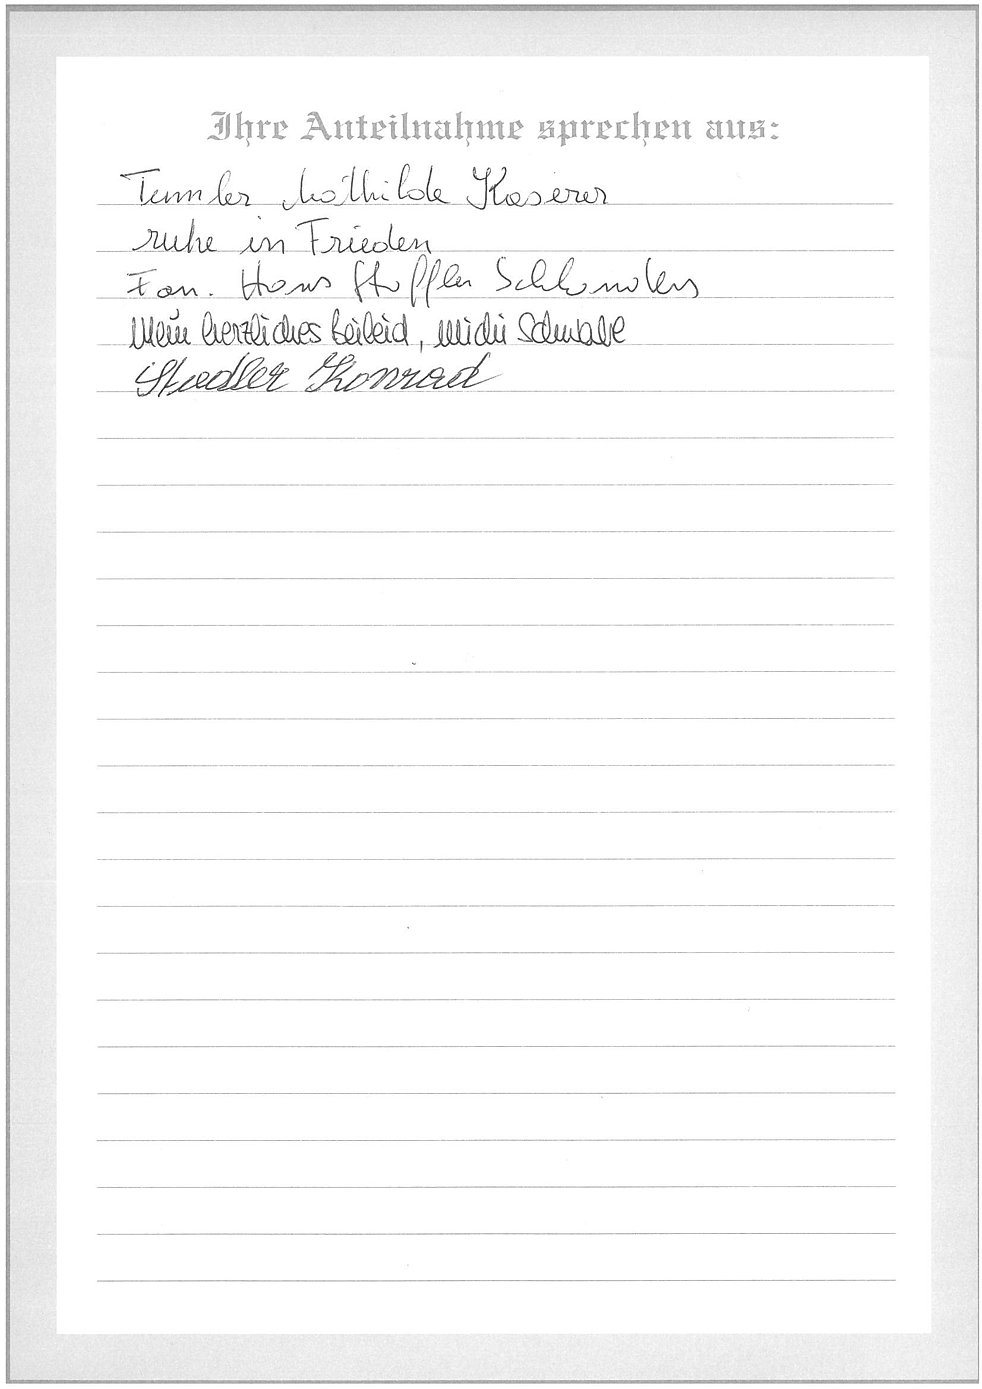 Ihre Anteilnahme sprechen aus:
Tumler Mathilde Kaserer
ruhe in Frieden
Fam. Hans Stoffler Schlanders
Mein herzliches Beileid, Michi Schwalt
Stadler Konrad